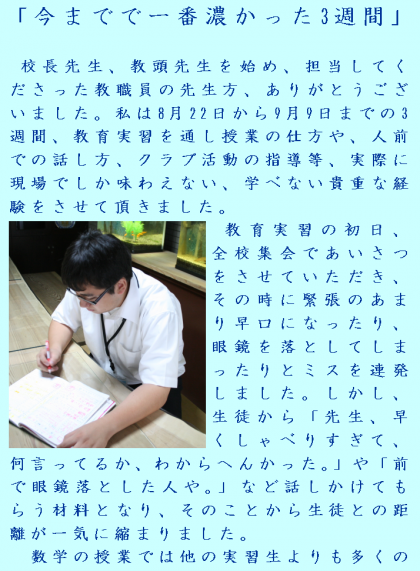 「今までで一番濃かった3週間」
校長先生、教頭先生を始め、担当してく
ださった教職員の先生方、ありがとうござ
いました。私は8月22日から9月9日までの3
週間、教育実習を通し授業の仕方や、人前
での話し方、クラブ活動の指導等、実際に
現場でしか味わえない、学べない貴重な経
験をさせて頂きました。
教育実習の初日、
全校集会であいさつ
をさせていただき、
その時に緊張のあま
り早口になったり、
眼鏡を落としてしま
ったりとミスを連発
しました。しかし、
生徒から「先生、早
くしゃべりすぎて、
何言ってるか、わからへんかった。」や「前
で眼鏡落とした人や。」など話しかけても
らう材料となり、そのことから生徒との距
離が一気に縮まりました。
数学の授業では他の実習生よりも多くの